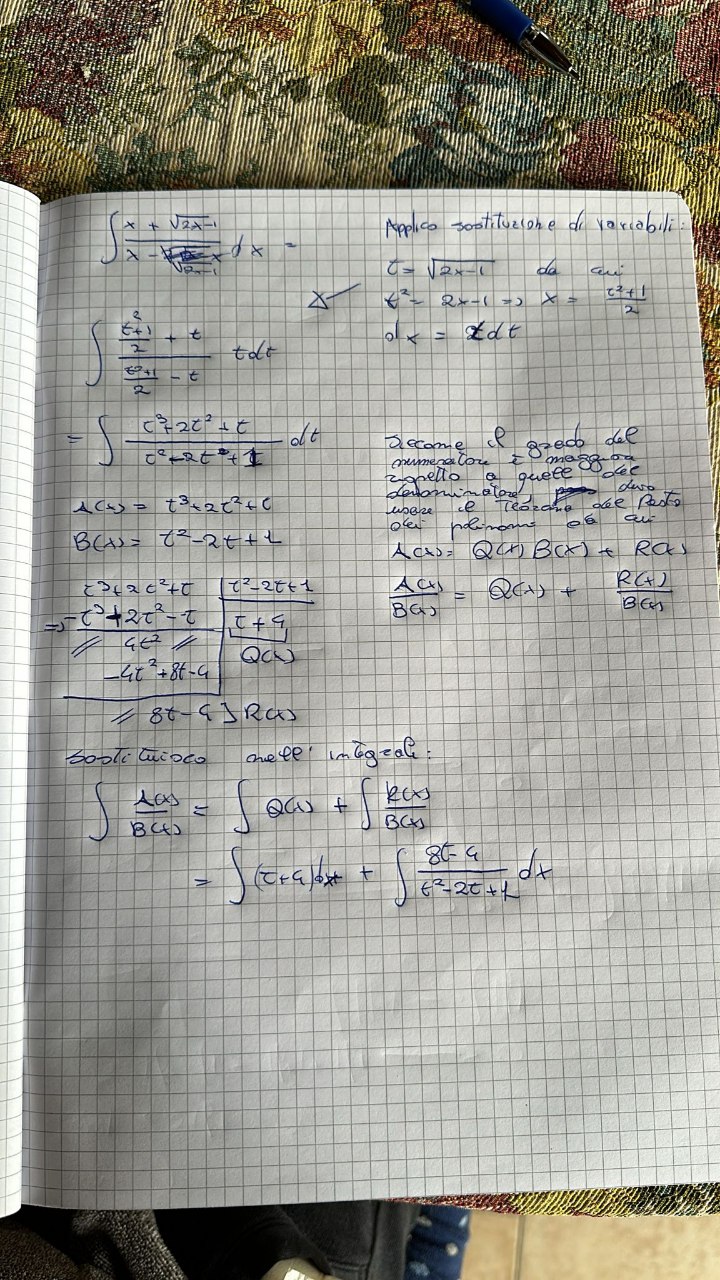 ∫ (x + √(2x-1)) / (x - √(2x-1)) dx =
Applico sostituzione di variabili:
t = √(2x-1) da cui
t² = 2x-1 => x = (t²+1)/2
dx = t dt
∫ ((t²+1)/2 + t) / ((t²+1)/2 - t) t dt
= ∫ (t³+2t²+t) / (t²-2t+1) dt
Siccome il grado del
numeratore è maggiore
rispetto a quello del
denominatore, devo
usare il Teorema del Resto
dei polinomi da cui
A(x) = Q(x) B(x) + R(x)
A(x)/B(x) = Q(x) + R(x)/B(x)
A(x) = t³+2t²+t
B(x) = t²-2t+1
t³+2t²+t | t²-2t+1
=> -t³+2t²-t | t+4
// 4t² // Q(x)
-4t²+8t-4
// 8t-4 ] R(x)
Sostituisco nell' integrale:
∫ A(x)/B(x) = ∫ Q(x) + ∫ R(x)/B(x)
= ∫ (t+4) dt + ∫ (8t-4) / (t²-2t+1) dx